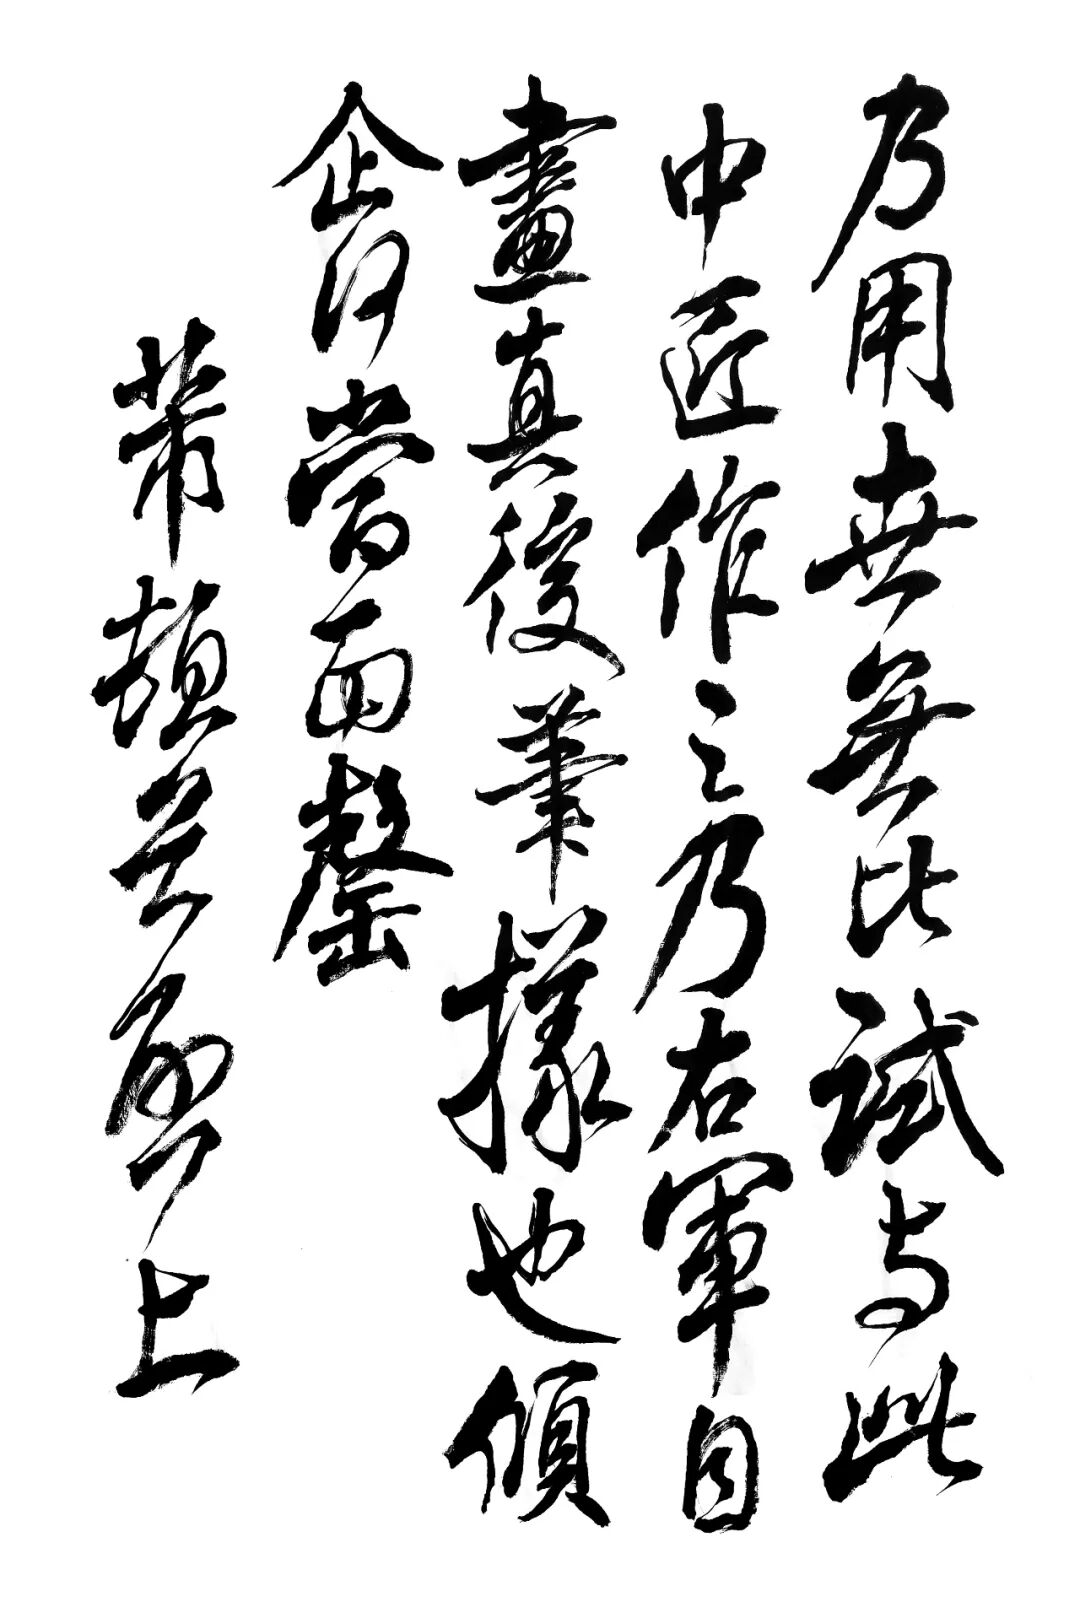 乃用世無比試与此
中匠作之乃右軍自
畫真後筆樣也傾
企何當面鑿
芾頓首啟上